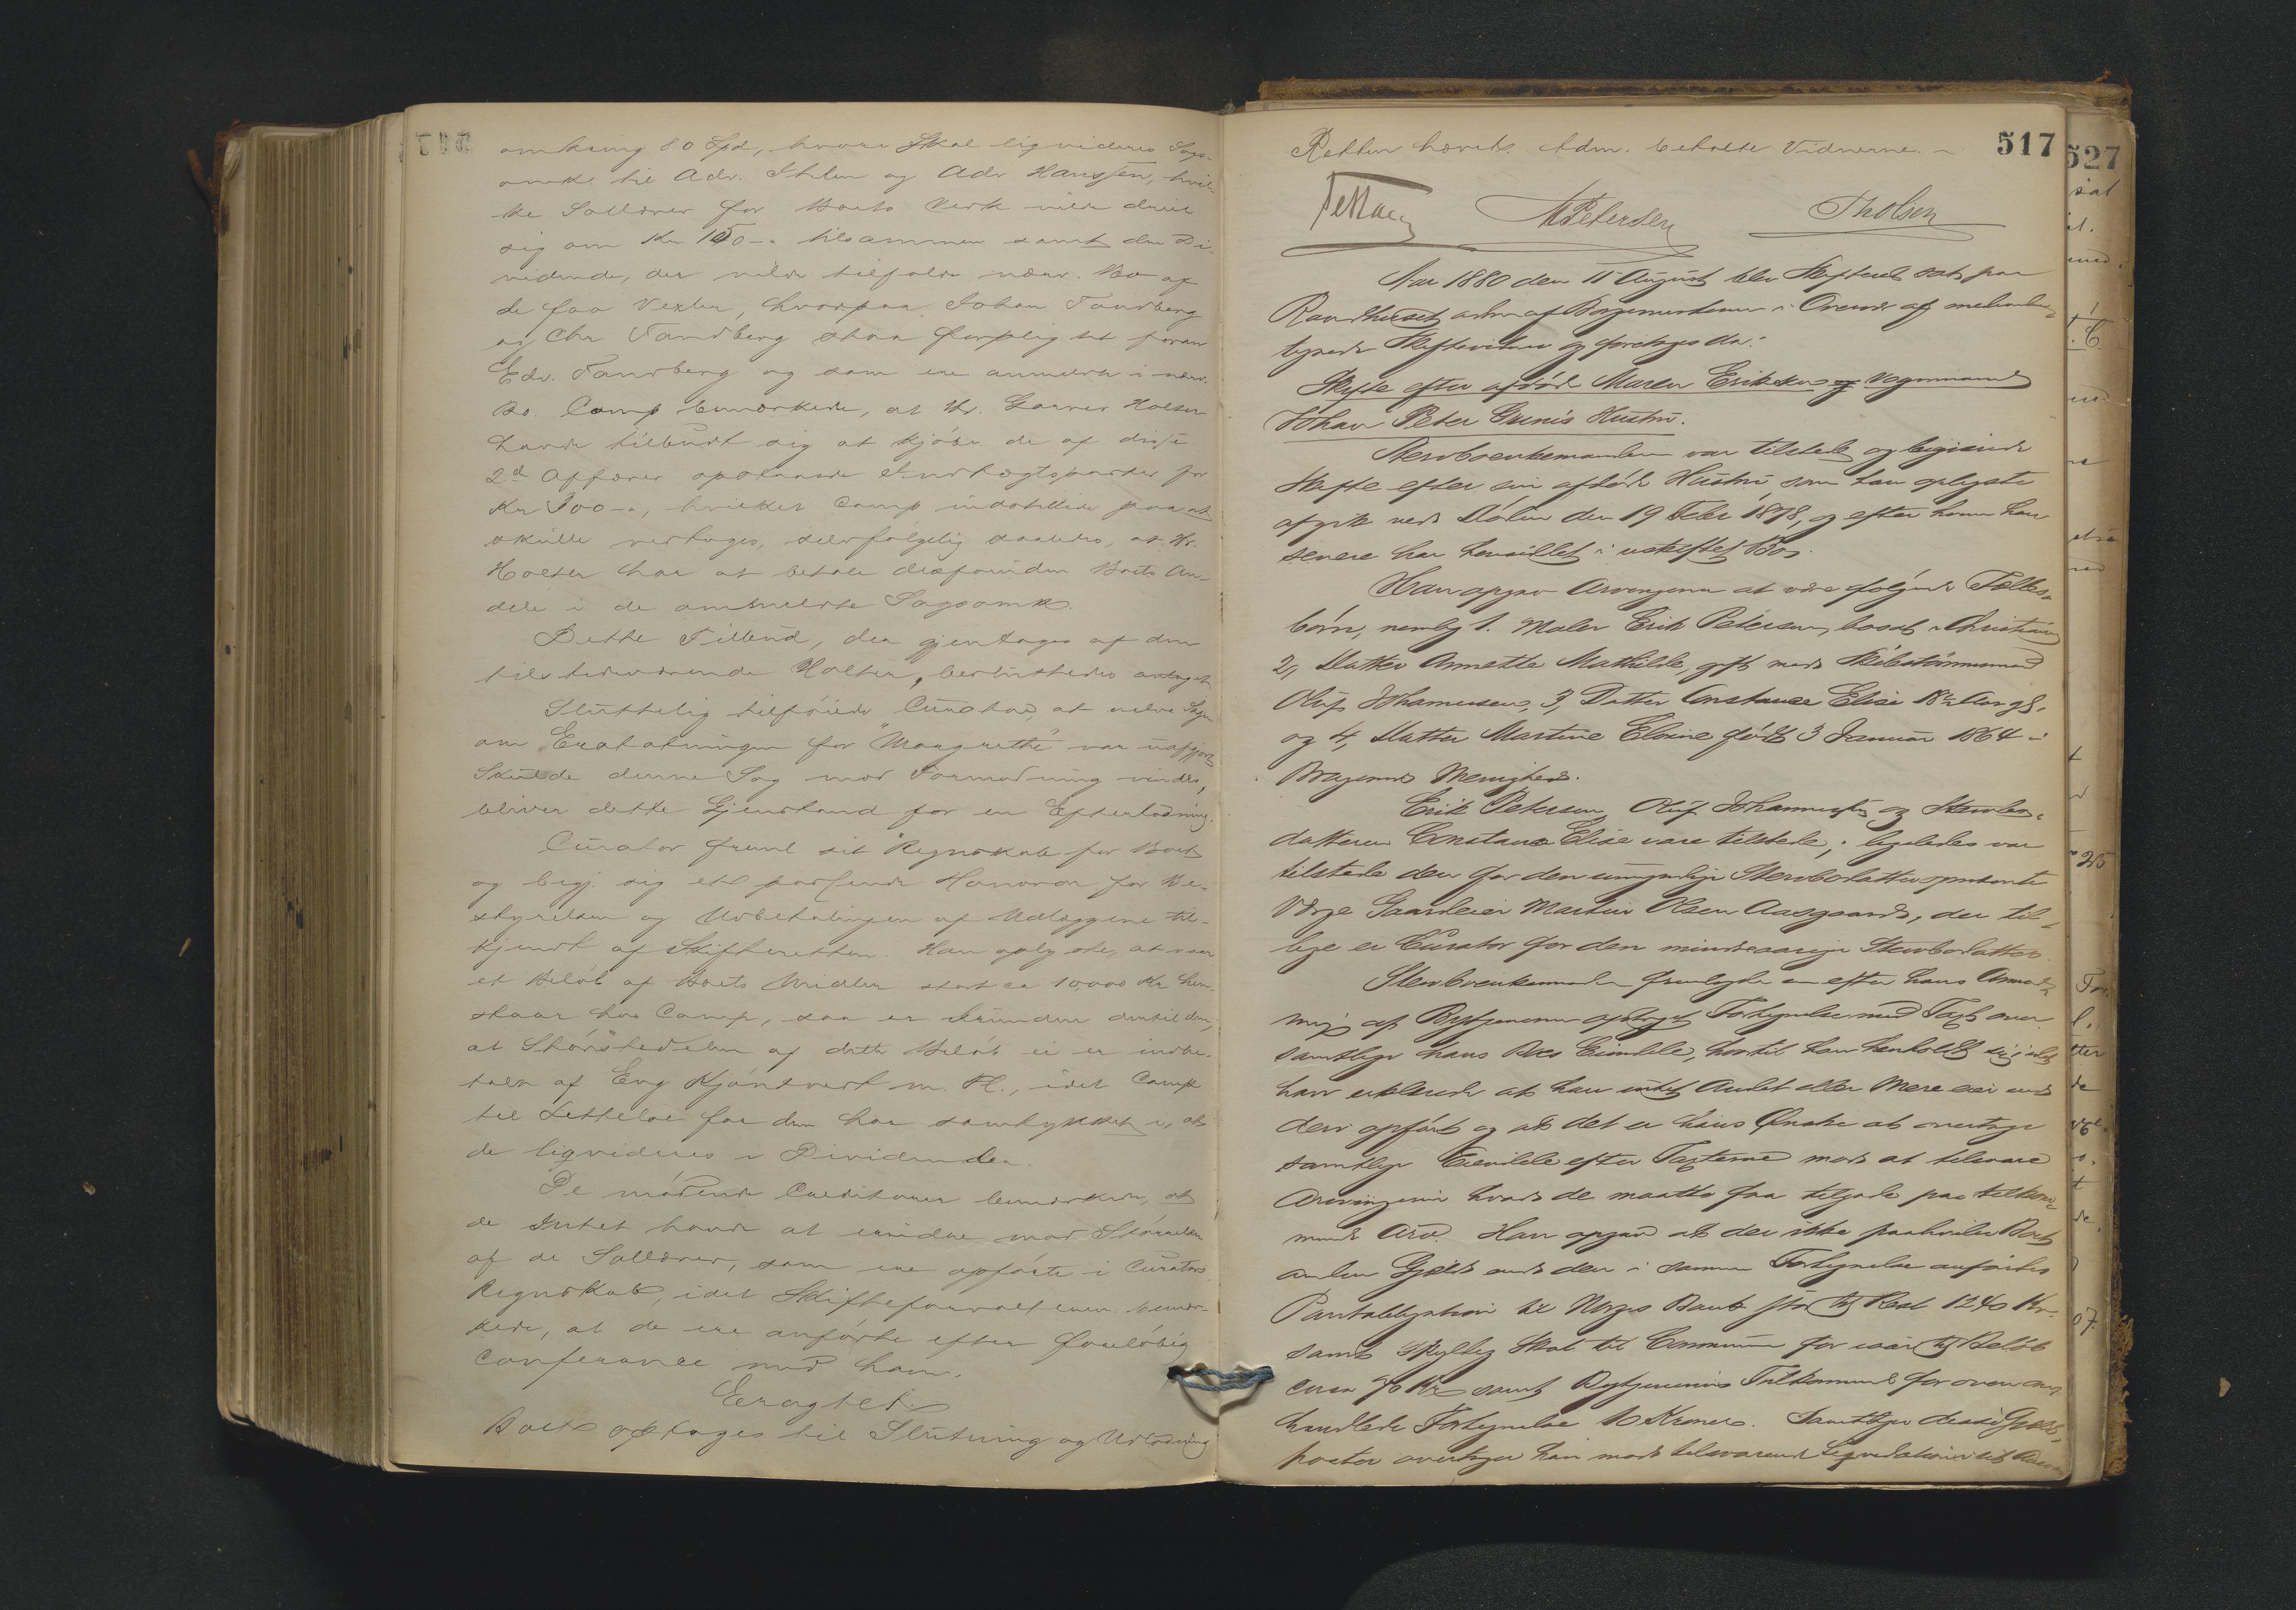 omkring 80 Spd, hvorav skal ligvideres Sags-
omk. til Adv. Ihlen og Adv Hanssen, hvil-
ke Sallærer for Boets Verk vilde dreie
sig om Kr 150 -" tilsammen samt den Di-
vidende, der vilde tilfalde nærv. Bo af
de faa Vexler, hvorpaa Johan Tandberg
og Chr Tandberg staa forpligtet foran
Edv. Tandberg og som ere anmeldte i nærv.
Bo. Camp bemærkede, at Hr. Garver Holter
havde tilbudt sig at kjøbe de af disse
2de Affærer opstaaede Indtægtsposter for
Kr 300 -", hvilket Camp indstillede paa at
skulle vedtages, selvfølgelig saaledes, at Hr.
Holter har at betale desforuden Boets An-
dele i de anmeldte Sagsomk.
Dette Tilbud, der gjentages af den
tilstedeværende Holter, besluttedes antaget
Sluttelig tilføiede Curator, at selve Sagen
om Erstatningen for "Margrethe" var uafgjort
Skulde denne Sag mod Formodning vindes,
bliver dette Gjenstand for en Efterlodning.
Curator freml sit Regnskab for Boet
og begj. sig et passende Honorar for Be-
styrelsen og Udbetalingen af Udlæggene til-
kjendt af Skifteretten. Han oplyste, at naar
et Beløb af Boets Midler stort ca 10,000 Kr hen-
staar hos Camp, saa er Grunden dertil den,
at Størstedelen af dette Beløb ei er indbe-
talt af Eng Kjøntvedt m. Fl., idet Camp
til Lettelse for dem har samtykket i, at
de ligvideres i Dividenden.
De mødende Creditorer bemærkede, at
de Intet havde at erindre mod Størrelsen
af de Sallærer, som ere opførte i Curators
Regnskab, idet Skifteforvalteren bemær-
kede, at de ere anførte efter foreløbig
Conferance med ham.
Eragtet
Boet optages til Slutning og Udlodning
517
Retten hævet. Adm. betalte Vidnerne.
APetersen Tholsen
Aar 1880 den 11 August blev Skifteret sat paa
Raadhuset adm af Borgermesteren i Overvær af medunder-
tegnede Skiftevidner og foretoges da:
Skifte efter afdøde Maren Eriksen Vognmand
Johan Peter Hustru.
Sterboenkemanden var tilstede og begjærede
Skifte efter sin afdøde Hustru, som han oplyste
afgik ved Døden den 19 Febr 1878, og efter hvem han
senere har hensiddet i uskiftet Bo.
Han opgav Arvingerne at være følgende Fælles-
børn, nemlig 1. Maler Erik Petersen, bosat i Christiania
2, Datter Annette Mathilde, gift med Skibstømmermand
Oluf Johannesen, 3, Datter Constance Elise 18½ Aar gl.
og 4, Datter Martine Elvine født 3 Januar 1864 i
Bragernes Menighed.
Erik Petersen, Oluf Johannesen og Sterbo-
datteren Constance Elise vare tilstede; ligeledes var
tilstede den for den umyndige Sterbodatter opnævnte
Værge Gaardeier Martin Olsen Aasgaard, der til-
lige er Curator for den mindreaarige Sterbodatter.
Sterboenkemanden fremlagde en efter hans Anmod-
ning af Bytjeneren optaget Fortegnelse med Taxt over
samtlige hans Boes Eiendele, hvortil han henholdt sig, idet
han erklærede at han intet Andet eller Mere eier end
deri opført og at det er hans Ønske at overtage
samtlige Eiendele efter Taxterne mod at tilsvare
Arvingerne hvad de maatte faa tilgode paa tilkom-
mende Arv. Han opgav at der ikke paahviler Boet
anden Gjæld end den i samme Fortegnelse anførte
Pantobligation til Norges Bank stor til Rest 1240 Kr.
samt Skyldig Skat til Communen for iaar til Beløb
circa 70 Kr samt Bytjenerens Tilkommende for oven om-
handlede Fortegnelse 10 Kroner. Samtlige disse Gjælds-
poster overtager han mod tilsvarende Ligvidation i sit Ansv
527